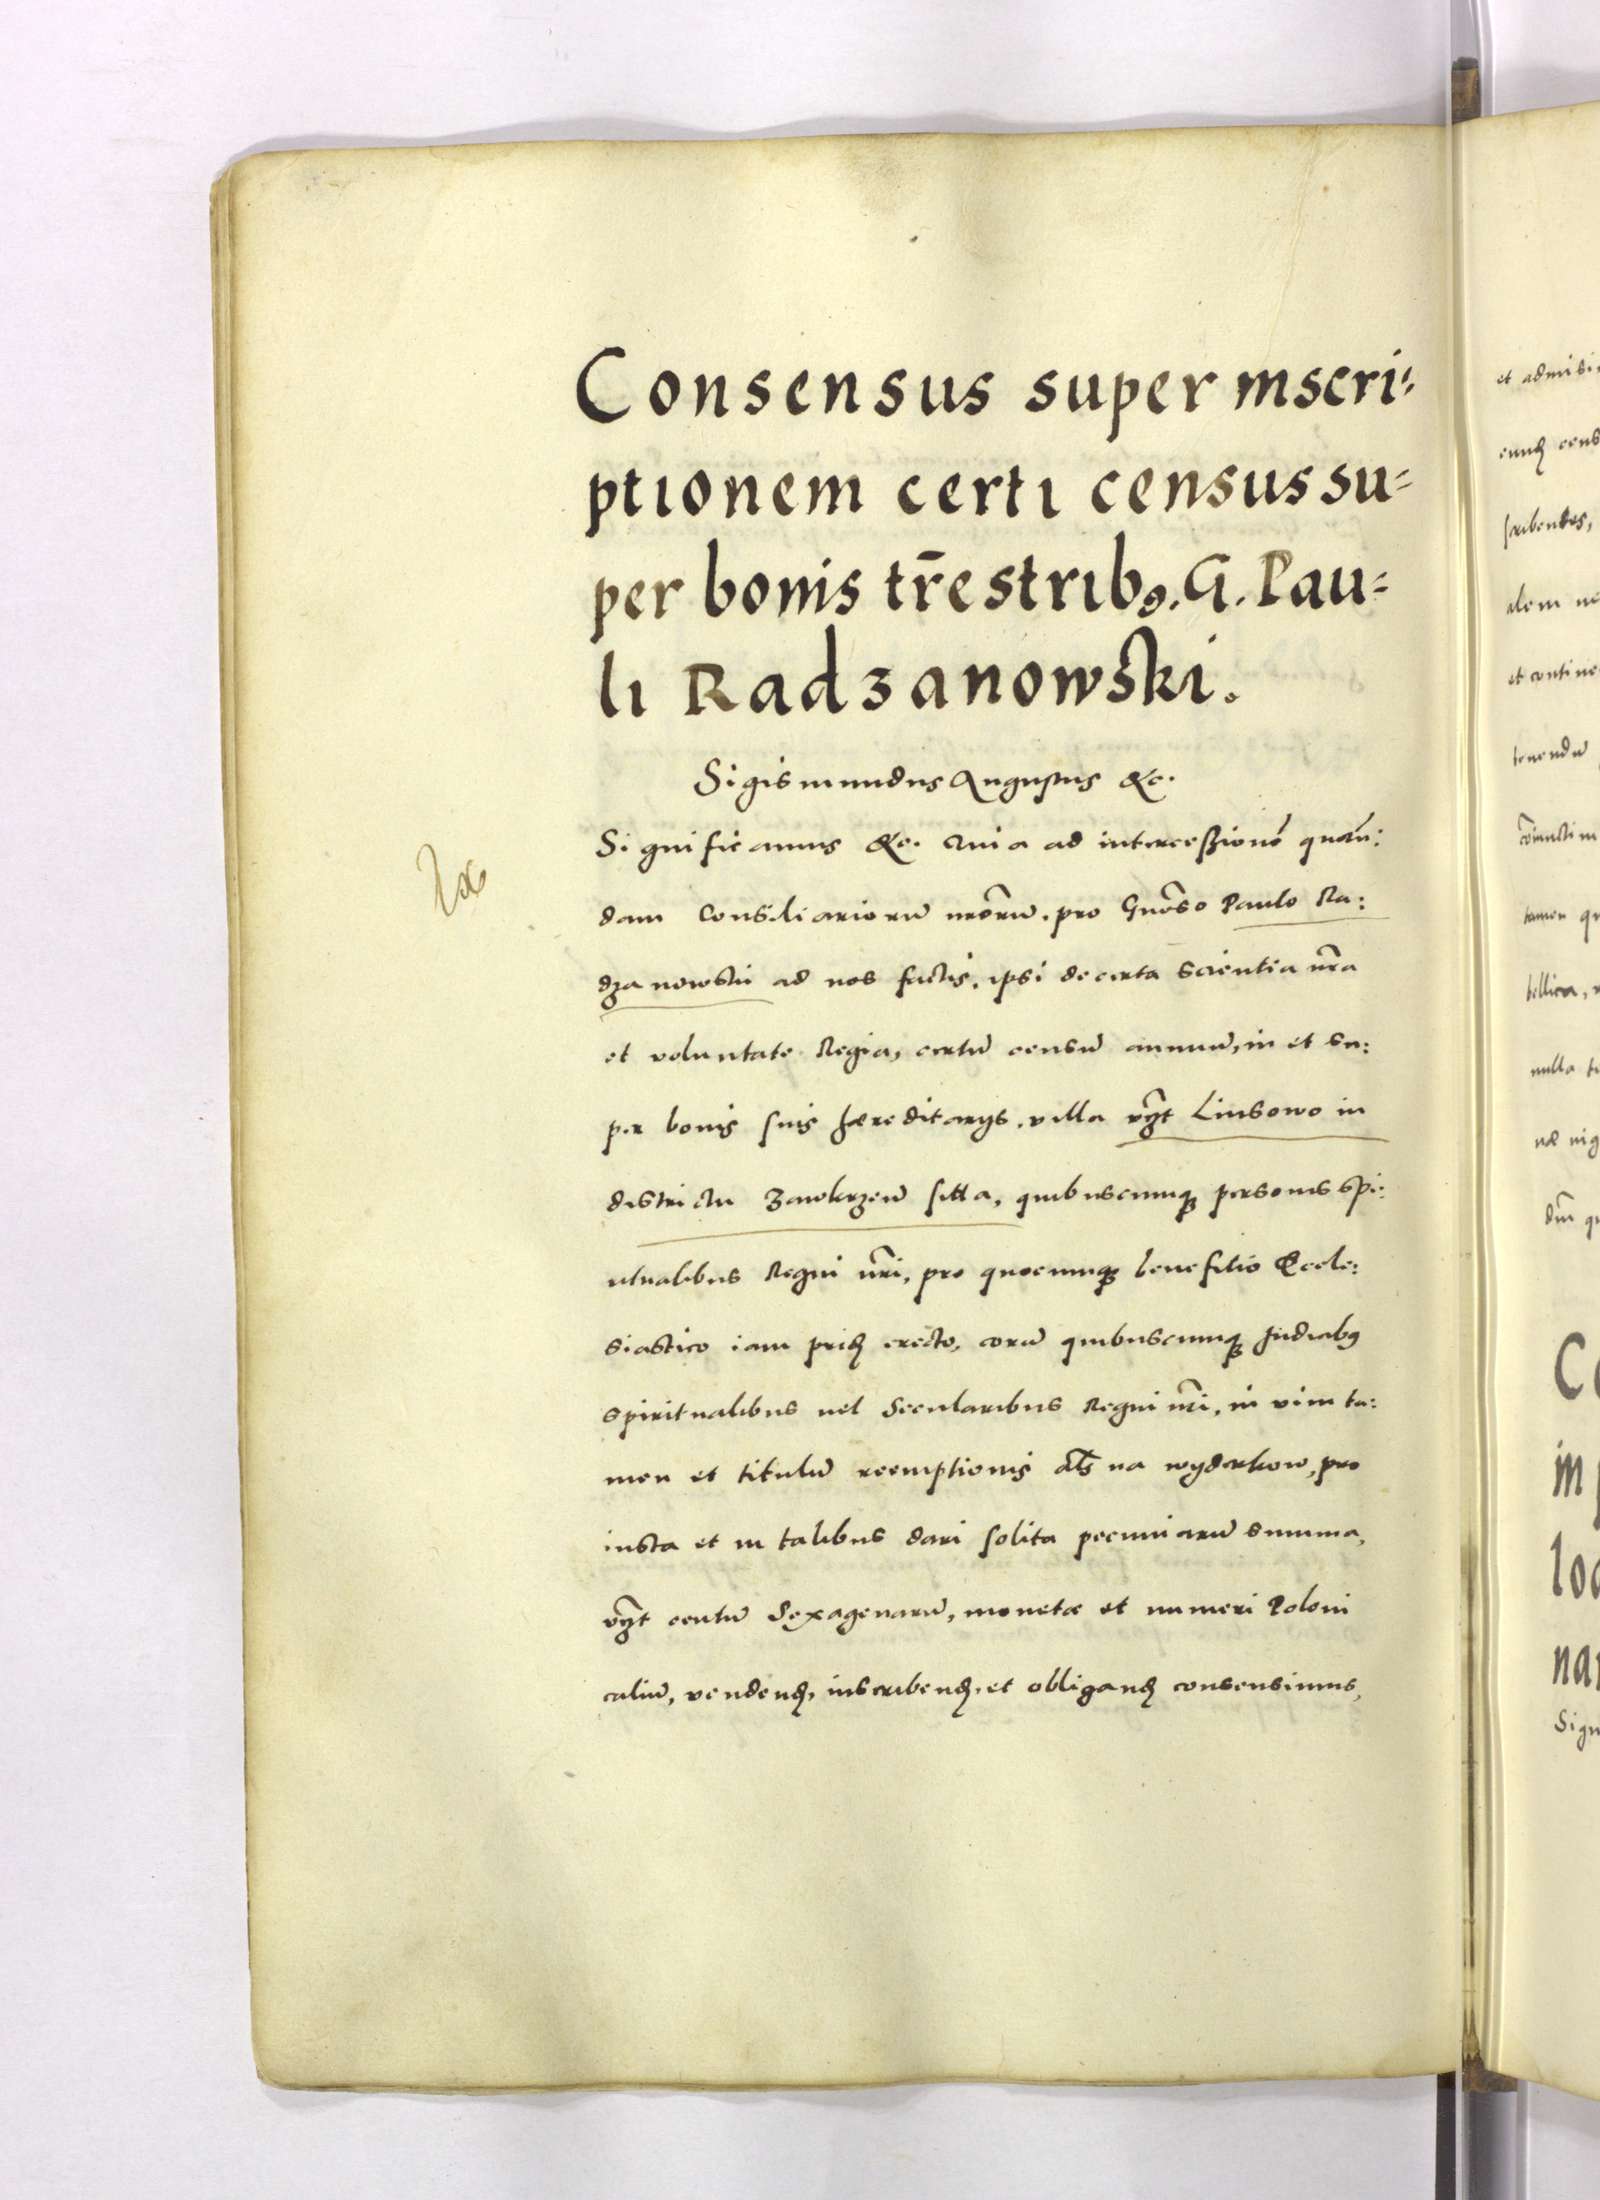 Consensus super inscri=
ptionem certi census su=
per bonis tr̄estribꝰ. G. Pau=
li Radzanowski.
Sigismundus Augustus &c.
Significamus &c. Quia ad intercessionē quan̄:
dam Consiliariorū nrōrū, pro Gnōso Paulo Ra:
dzanowskii ad nos factis, ipsi de certa scientia nr̄a
et voluntate Regia, certū censū annuū, in et su:
per bonis suis hæreditarys, villa vꝫt̄ Linsowo in
districtu Zawkrzeiū sitta, quibuscunqꝫ personis spi:
ritualibus Regni nr̄i, pro quocunqꝫ benefitio Eccle:
siastico iam prid erecto, corā quibuscunqꝫ Iudiabꝰ
spiritualibus vel Secularibus Regni nr̄i, in vim ta:
men et titulū reemptionis als̄ na wyderkow, pro
iusta et in talibus dari solita pecuniarū summa,
vꝫt̄ centū Sexagenarū, monetæ et numeri Poloni
caliū, vendend, inscribend, et obligand consensimus,
et admisi
cund cens
scribentes,
alem ne
et contine
tenendū
cōiunctim
tamen qu
bellica,
nulla
næ nig
dm̄ qu
Co
in p
loc
nar
Sign